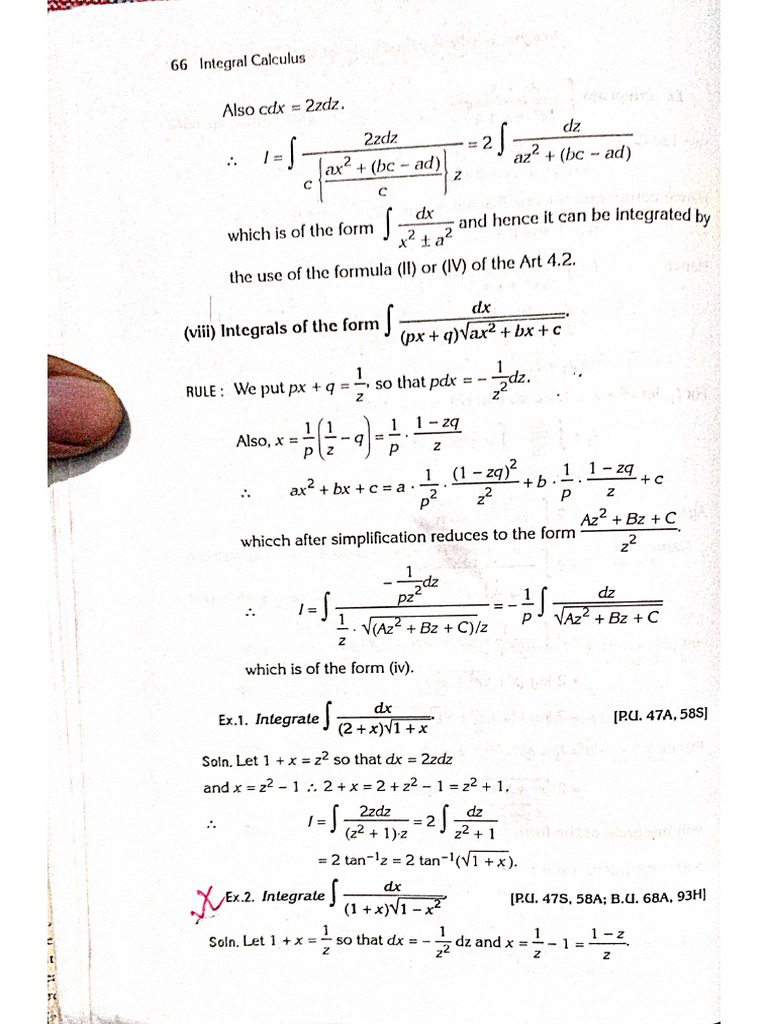 66 Integral Calculus
Also cdx = 2zdz.
∴ I = ∫ 2zdz / c {ax² + (bc − ad) / c} z = 2 ∫ dz / az² + (bc − ad)
which is of the form ∫ dx / x² ± a² and hence it can be integrated by
the use of the formula (II) or (IV) of the Art 4.2.
(viii) Integrals of the form ∫ dx / (px + q)√ax² + bx + c.
RULE : We put px + q = 1/z, so that pdx = − 1/z² dz.
Also, x = 1/p (1/z − q) = 1/p · 1 − zq / z
∴ ax² + bx + c = a · 1/p² · (1 − zq)² / z² + b · 1/p · 1 − zq / z + c
whicch after simplification reduces to the form Az² + Bz + C / z².
∴ I = ∫ − 1/pz² dz / 1/z · √(Az² + Bz + C)/z = − 1/p ∫ dz / √Az² + Bz + C
which is of the form (iv).
Ex.1. Integrate ∫ dx / (2 + x)√1 + x. [P.U. 47A, 58S]
Soln. Let 1 + x = z² so that dx = 2zdz
and x = z² − 1 ∴ 2 + x = 2 + z² − 1 = z² + 1,
∴ I = ∫ 2zdz / (z² + 1)·z = 2 ∫ dz / z² + 1
= 2 tan⁻¹z = 2 tan⁻¹(√1 + x).
Ex.2. Integrate ∫ dx / (1 + x)√1 − x². [P.U. 47S, 58A; B.U. 68A, 93H]
Soln. Let 1 + x = 1/z so that dx = − 1/z² dz and x = 1/z − 1 = 1 − z / z.